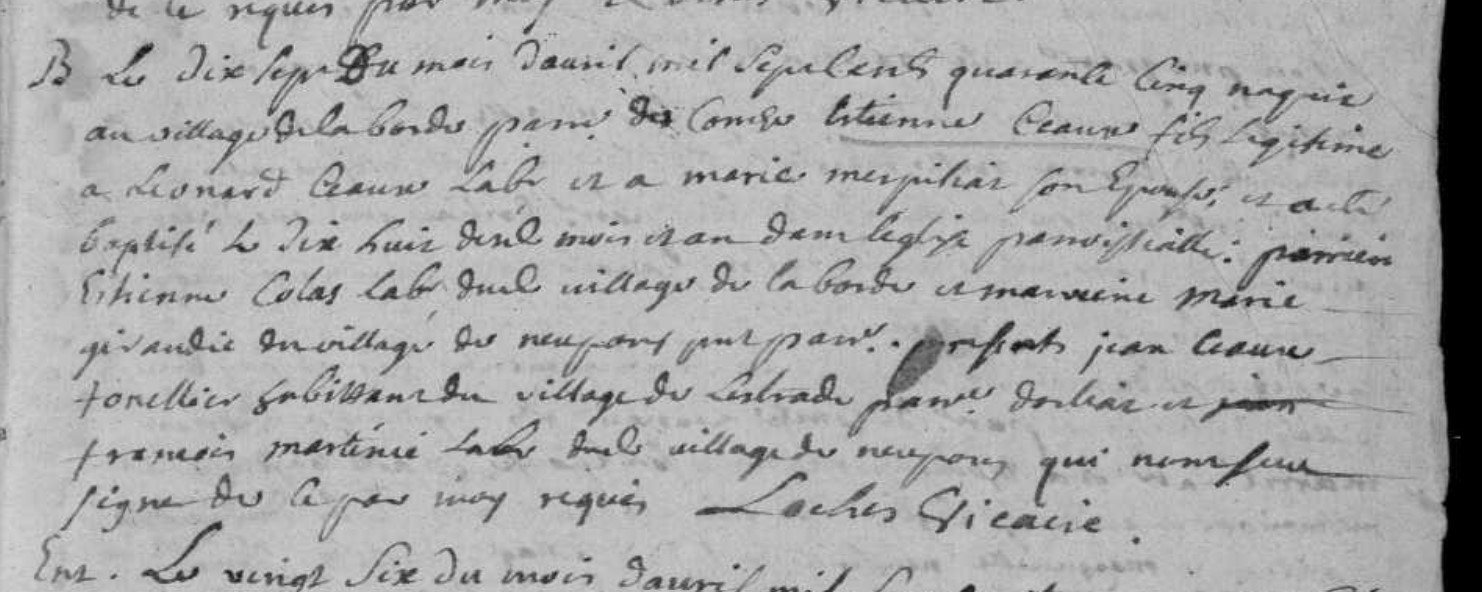 de ce requis par moy
B Le dix sept Du mois davril mil sept cents quarante cinq naquit
au village de la borde parr. de Estienne Ceaux fils legitime
a Leonard Ceaux Labr et a marie son Epouse, et a eté
baptisé le dix huit dud mois et an dans leglise parroissialle. parrein
Estienne Colas labr dud village de la borde et marreine marie
giraudie du village de neupons put parr. presents jean Ceaux
tonellier habittant du village de Lestrade parr. et jean
francois martinie Labr dud village de neupons qui nont sceu
signe de ce par moy requis Vicaire.
Ent. Le vingt Six du mois davril mil